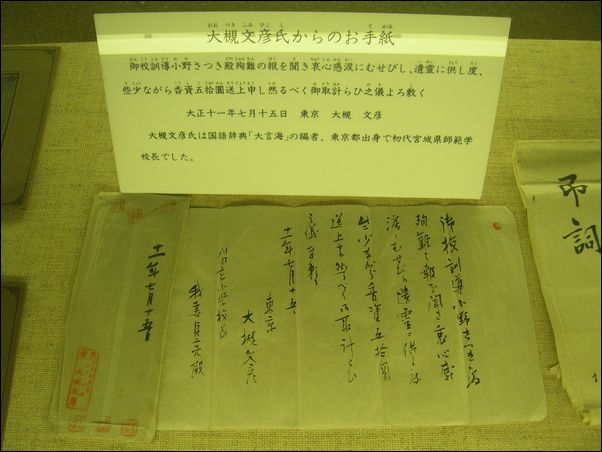 大槻文彦氏からのお手紙
御校訓導小野さつき殿殉難の報を聞き衷心感涙にむせびし、遺霊に供し度、
些少ながら香資五拾圓送上申し然るべく御取計らひ之儀よろ敷く
大正十一年七月十五日 東京 大槻 文彦
大槻文彦氏は国語辞典「大言海」の編者、東京都出身で初代宮城県師範学
校長でした。
御校訓導小野さつき殿
殉難之報を聞き衷心感
涙にむせび遺霊に供し度
些少ながら香資五拾圓
送上申然べく御取計らひ
之儀
十一年七月十五日
東京
大槻文彦
小学校長
我妻 殿
十一年七月十五日
弔詞